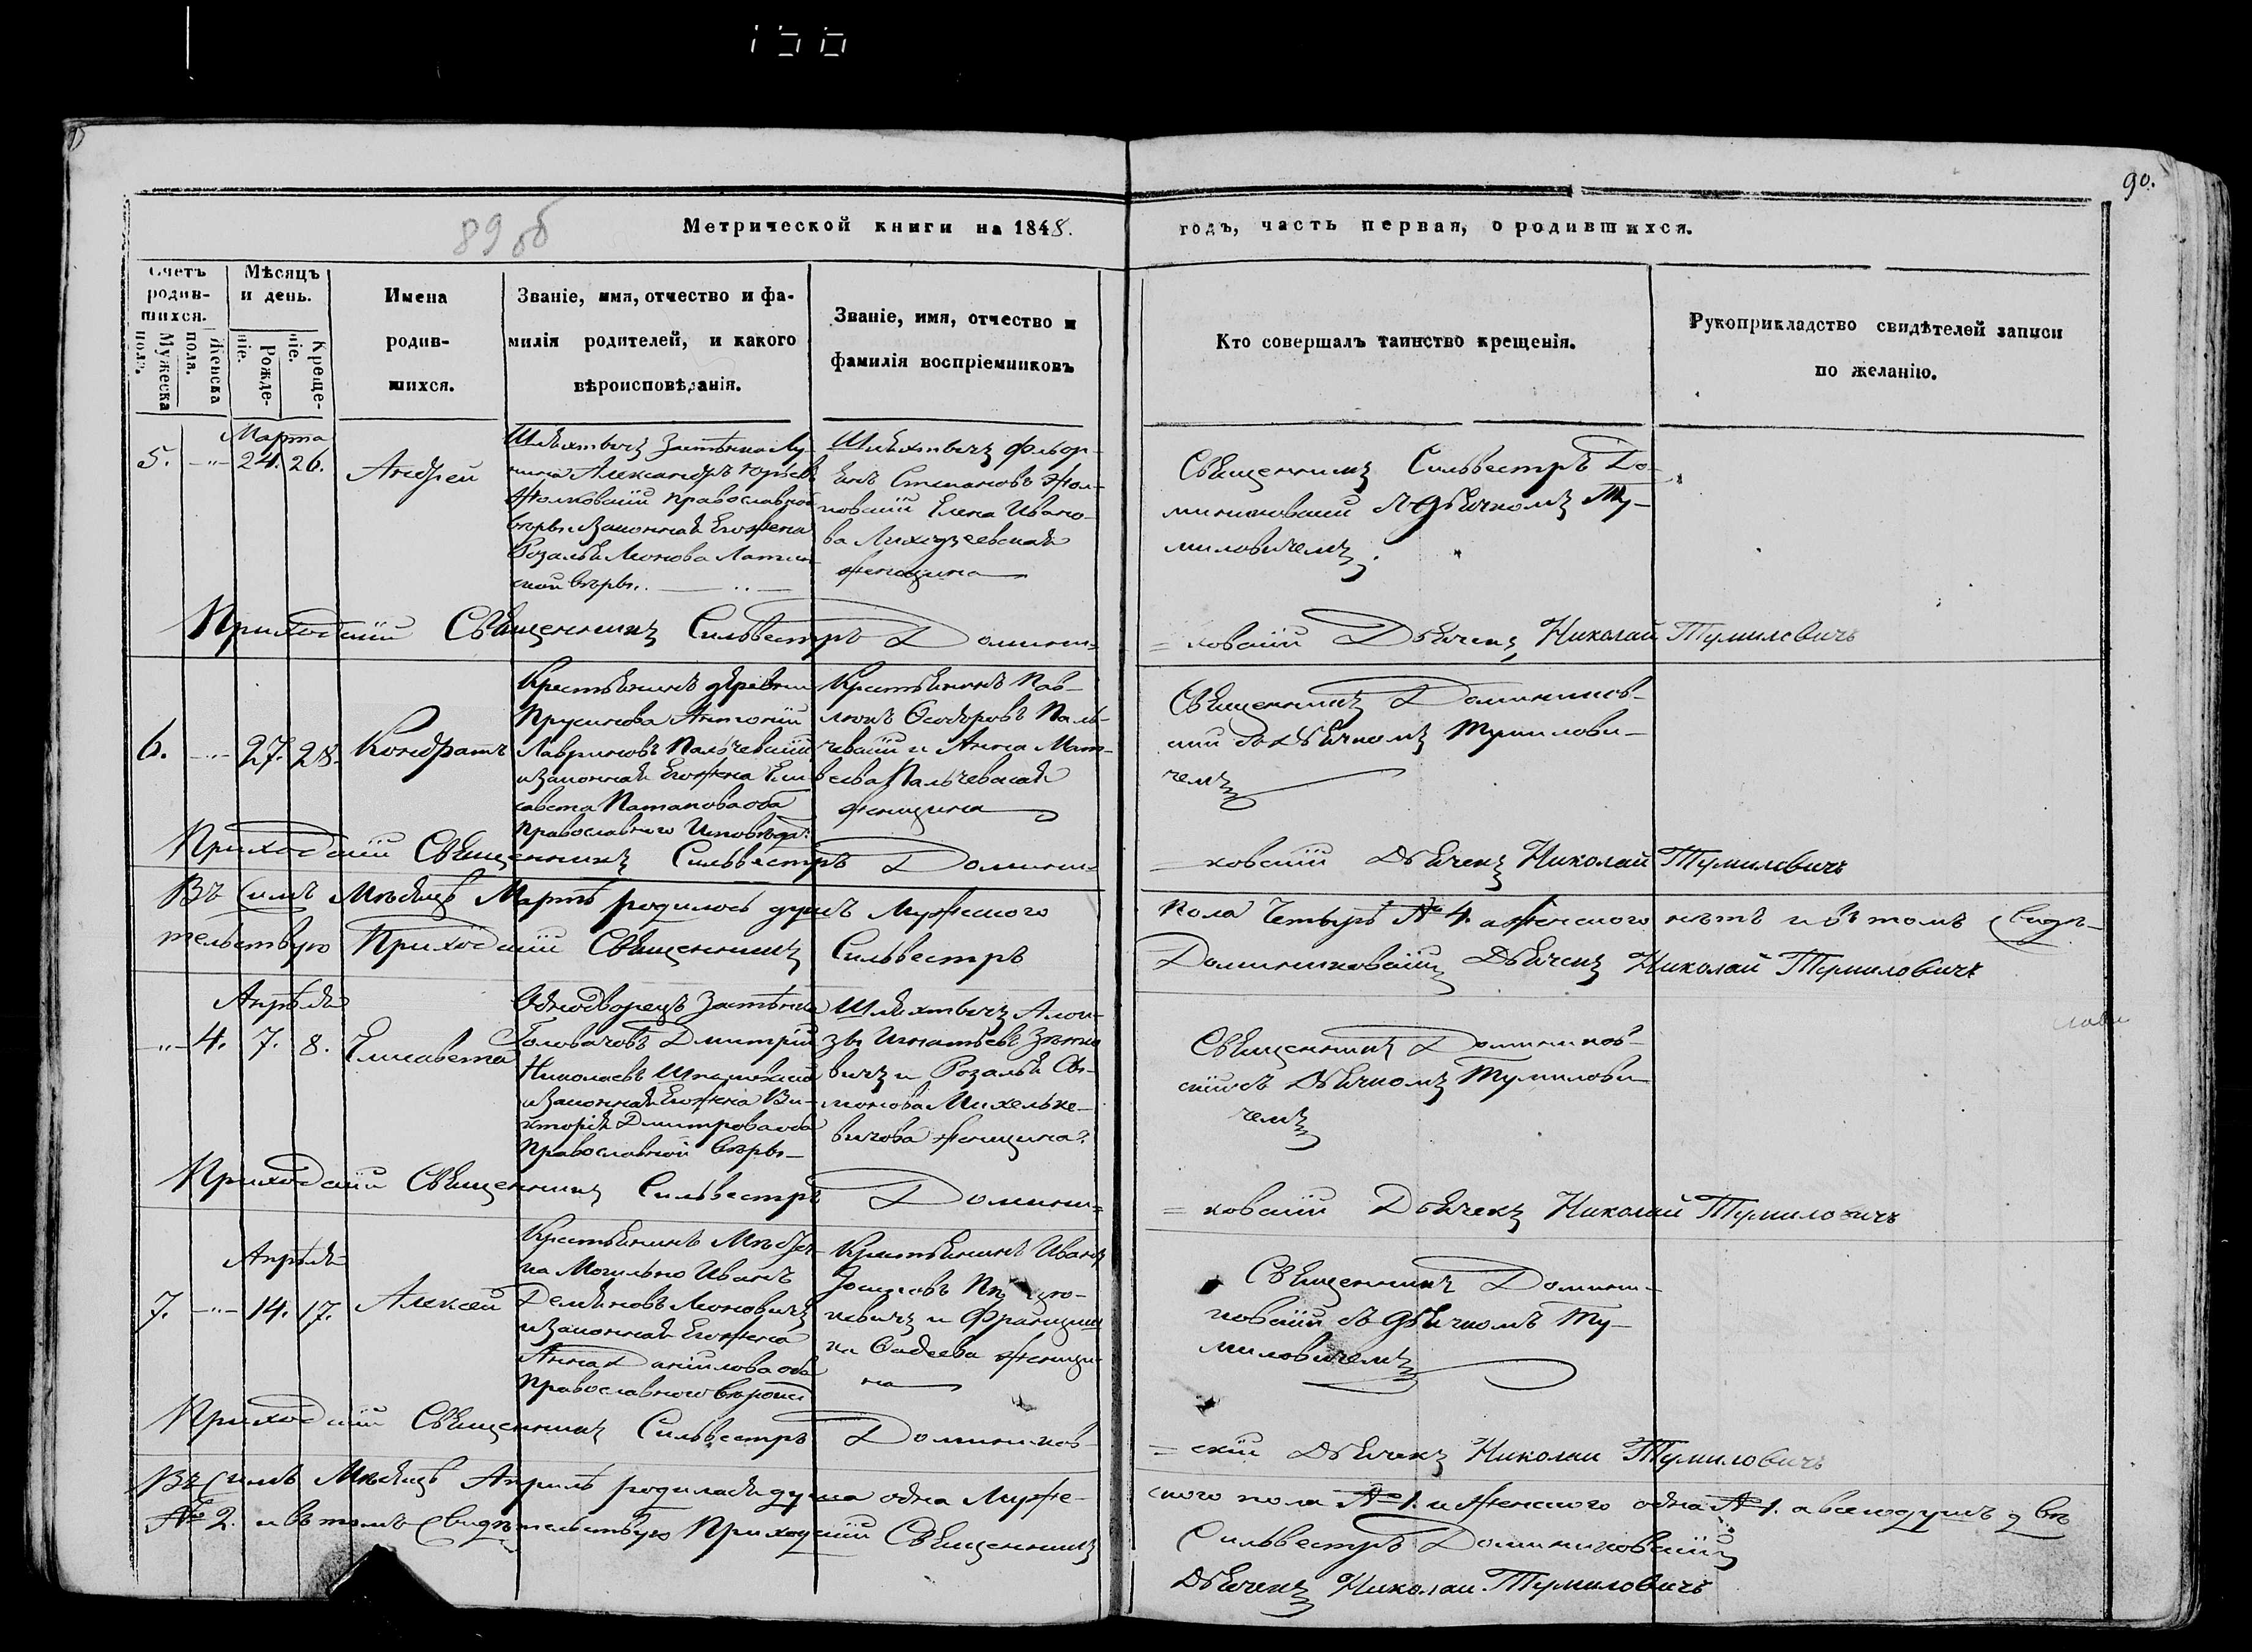 90.
89 об
Метрической книги на 1848.
годъ, часть первая, о родившихся.
Счетъ родившихся.
Мужеска пола.
Женска пола.
Мѣсяцъ и день.
Рожденіе.
Крещеніе.
Имена
родив-
шихся.
Званіе, имя, отчество и фа-
милія родителей, и какого
вѣроисповѣданія.
Званіе, имя, отчество и
фамилія воспріемниковъ
Кто совершалъ таинство крещенія.
Рукоприкладство свидѣтелей записи
по желанію.
Марта
5. -"- 24. 26.
Андрей
Шляхтичъ Застѣнка
Александръ Юрьевъ
Жолковскій Православной
вѣры и Законная Его Жена
Розалія Леонова Латин-
ской вѣры.
Шляхтичъ Флор-
Степановъ Жол-
ковскій Елена Ивано-
ва
женщина
Священникъ Сильвестръ До-
миниковскій съ Дьячкомъ Ту-
миловичемъ.
Приходскій Священникъ Сильвестръ Домини-
=ковскій Дьячекъ Николай Тумиловичъ
6. -"- 27. 28.
Кондратъ
Крестьянинъ деревни
Прусинова Антоній
Лавриновъ Пальчевскій
и Законная Его Жена Ели-
савета Патапова оба
Православного
Крестьянинъ Пав-
люкъ Ѳеодоровъ Паль-
чевскій и Анна Мат-
веева Пальчевская
женщина
Священникъ Домиников-
скій съ Дьячкомъ Тумилови-
чемъ
Приходскій Священникъ Сильвестръ Домини-
=ковскій Дьячекъ Николай Тумиловичъ
Въ Семъ Мѣсяцѣ Мартѣ родилось душъ Мужеского
пола Четыре № 4. а женского нѣтъ и въ томъ Свидѣ-
тельствую Приходскій Священникъ Сильвестръ
Доминиковскій Дьячекъ Николай Тумиловичъ
Апрѣля
-"- 4. 7. 8.
Елисавета
Однодворецъ Застѣнка
Головачовъ Дмитрій
Николаевъ
и Законная Его Жена Ви-
кторія Дмитрова оба
Православной вѣры
Шляхтичъ Алои-
зъ Игнатьевъ
вичъ и Розалія
Михельке-
вичова женщина.
Священникъ Домиников-
скій съ Дьячкомъ Тумилови-
чемъ
Приходскій Священникъ Сильвестръ Домини-
=ковскій Дьячекъ Николай Тумиловичъ
Апрѣля
7. -"- 14. 17.
Алексей
Крестьянинъ Мѣстеч-
ка Могильно Иванъ
Демяновъ Леоновичъ
и Законная Его Жена
Анна Даніилова оба
Православного
Крестьянинъ Иванъ
невичъ и Францишки-
на Фадеева женщи-
на
Священникъ Домини-
ковскій съ Дьячкомъ Ту-
миловичемъ
Приходскій Священникъ Сильвестръ Домиников-
=скій Дьячекъ Николай Тумиловичъ
Въ Семъ Мѣсяцѣ Априлѣ родилась душа одна Муже-
ского пола № 1. и Женского одна № 1. а всего душъ 2 въ
№ 2. и въ томъ Свидѣтельствую Приходскій Священникъ
Сильвестръ Доминиковскій
Дьячекъ Николай Тумиловичъ